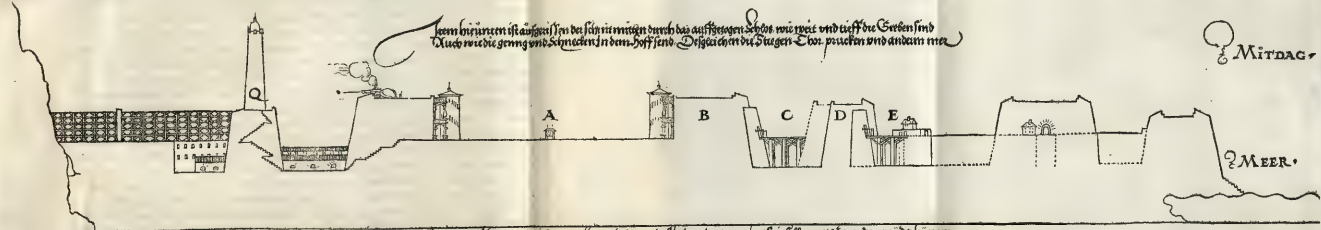 Item hieunten ist aufgerissen der schnit mitten durch das auffgezogen Schlos wie weit vnd tieff die Greben sind
Auch wie die geng vnd Schnecken in dem Hoff send Desgleichen die Stiegen Thor prucken vnd anderm mer
MITDAG.
Q
A
B
C
D
E
MEER.